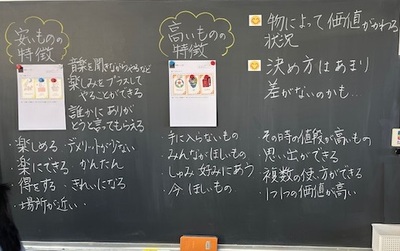 安いものの
特徴
音楽を聞きながらやるなど
楽しみをプラスして
やることができる
誰かにありが
とうと言ってもらえる
・楽しめる ・デメリットが少ない
・楽にできる ・かんたん
・得をする ・きれいになる
・場所が近い
高いものの
特徴
・手に入らないもの
・みんながほしいもの
・しゅみ 好みにあう
・今 ほしいもの
物によって価値がかわる
状況
決め方はあまり
差がないのかも…
・その時の値段が高いもの
・思い出ができる
・複数の使い方ができる
・1つ1つの価値が高い